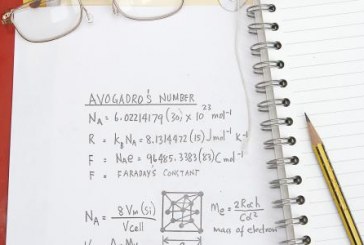 AVOGADRO'S NUMBER
N_A = 6.02214179 (30) x 10^23 mol^-1
R = k_B N_A = 8.314472 (15) J mol^-1 K^-1
F = N_A e = 96485.3383 (83) C mol^-1
F = FARADAY'S CONSTANT
N_A = 8 V_m (Si) / V_cell
M_e = 2 R∞ h / C α^2
mass of electron